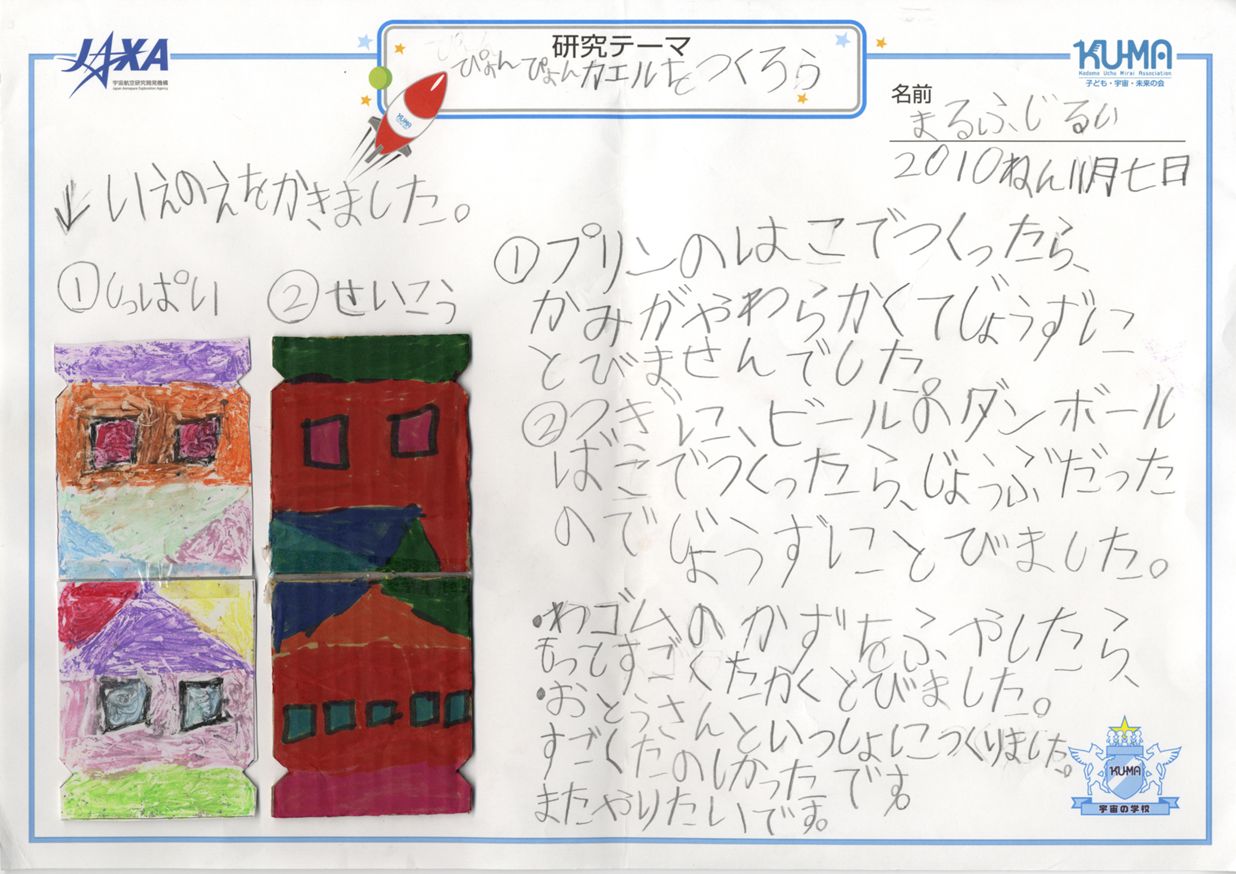 JAXA
宇宙航空研究開発機構
Japan Aerospace Exploration Agency
研究テーマ
ぴょんぴょんカエルをつくろう
KUMA
KUMA
Kodomo Uchu Mirai Association
子ども・宇宙・未来の会
名前
まるふじるい
2010ねん11月七日
↓いえのえをかきました。
①しっぱい
②せいこう
①プリンのはこでつくったら、
かみがやわらかくてじょうずに
とびませんでした
②つぎに、ビールのダンボール
ばこでつくったら、じょうぶだった
のでじょうずにとびました。
・わゴムのかずをふやしたら、
もってすごくたかくとびました。
・おとうさんといっしょにつくりました。
すごくたのしかったです。
またやりたいです。
KUMA
宇宙の学校